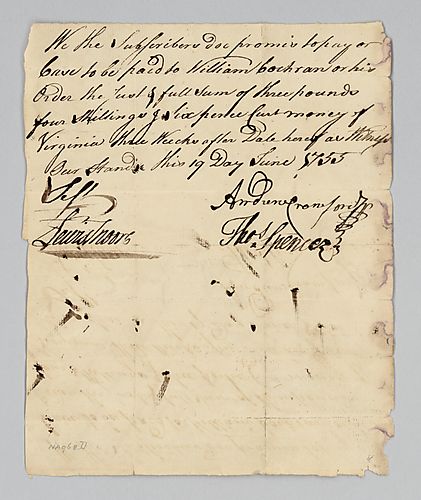 We the Subscribers doe promis to pay or
Cause to be paid to William Cochran or his
Order the Just & full Sum of three pounds
four Shillings & Six pence Curt money of
Virginia three Weeks after Date hereof as Witness
Our Hands this 19 Day June 1755
Test
Andrew Crawford
Lewis Moore
Thos Spencer